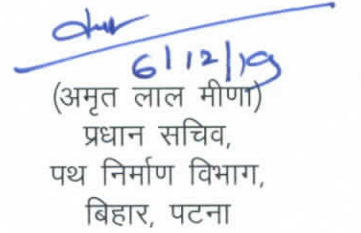 6/12/19
(अमृत लाल मीणा)
प्रधान सचिव,
पथ निर्माण विभाग,
बिहार, पटना